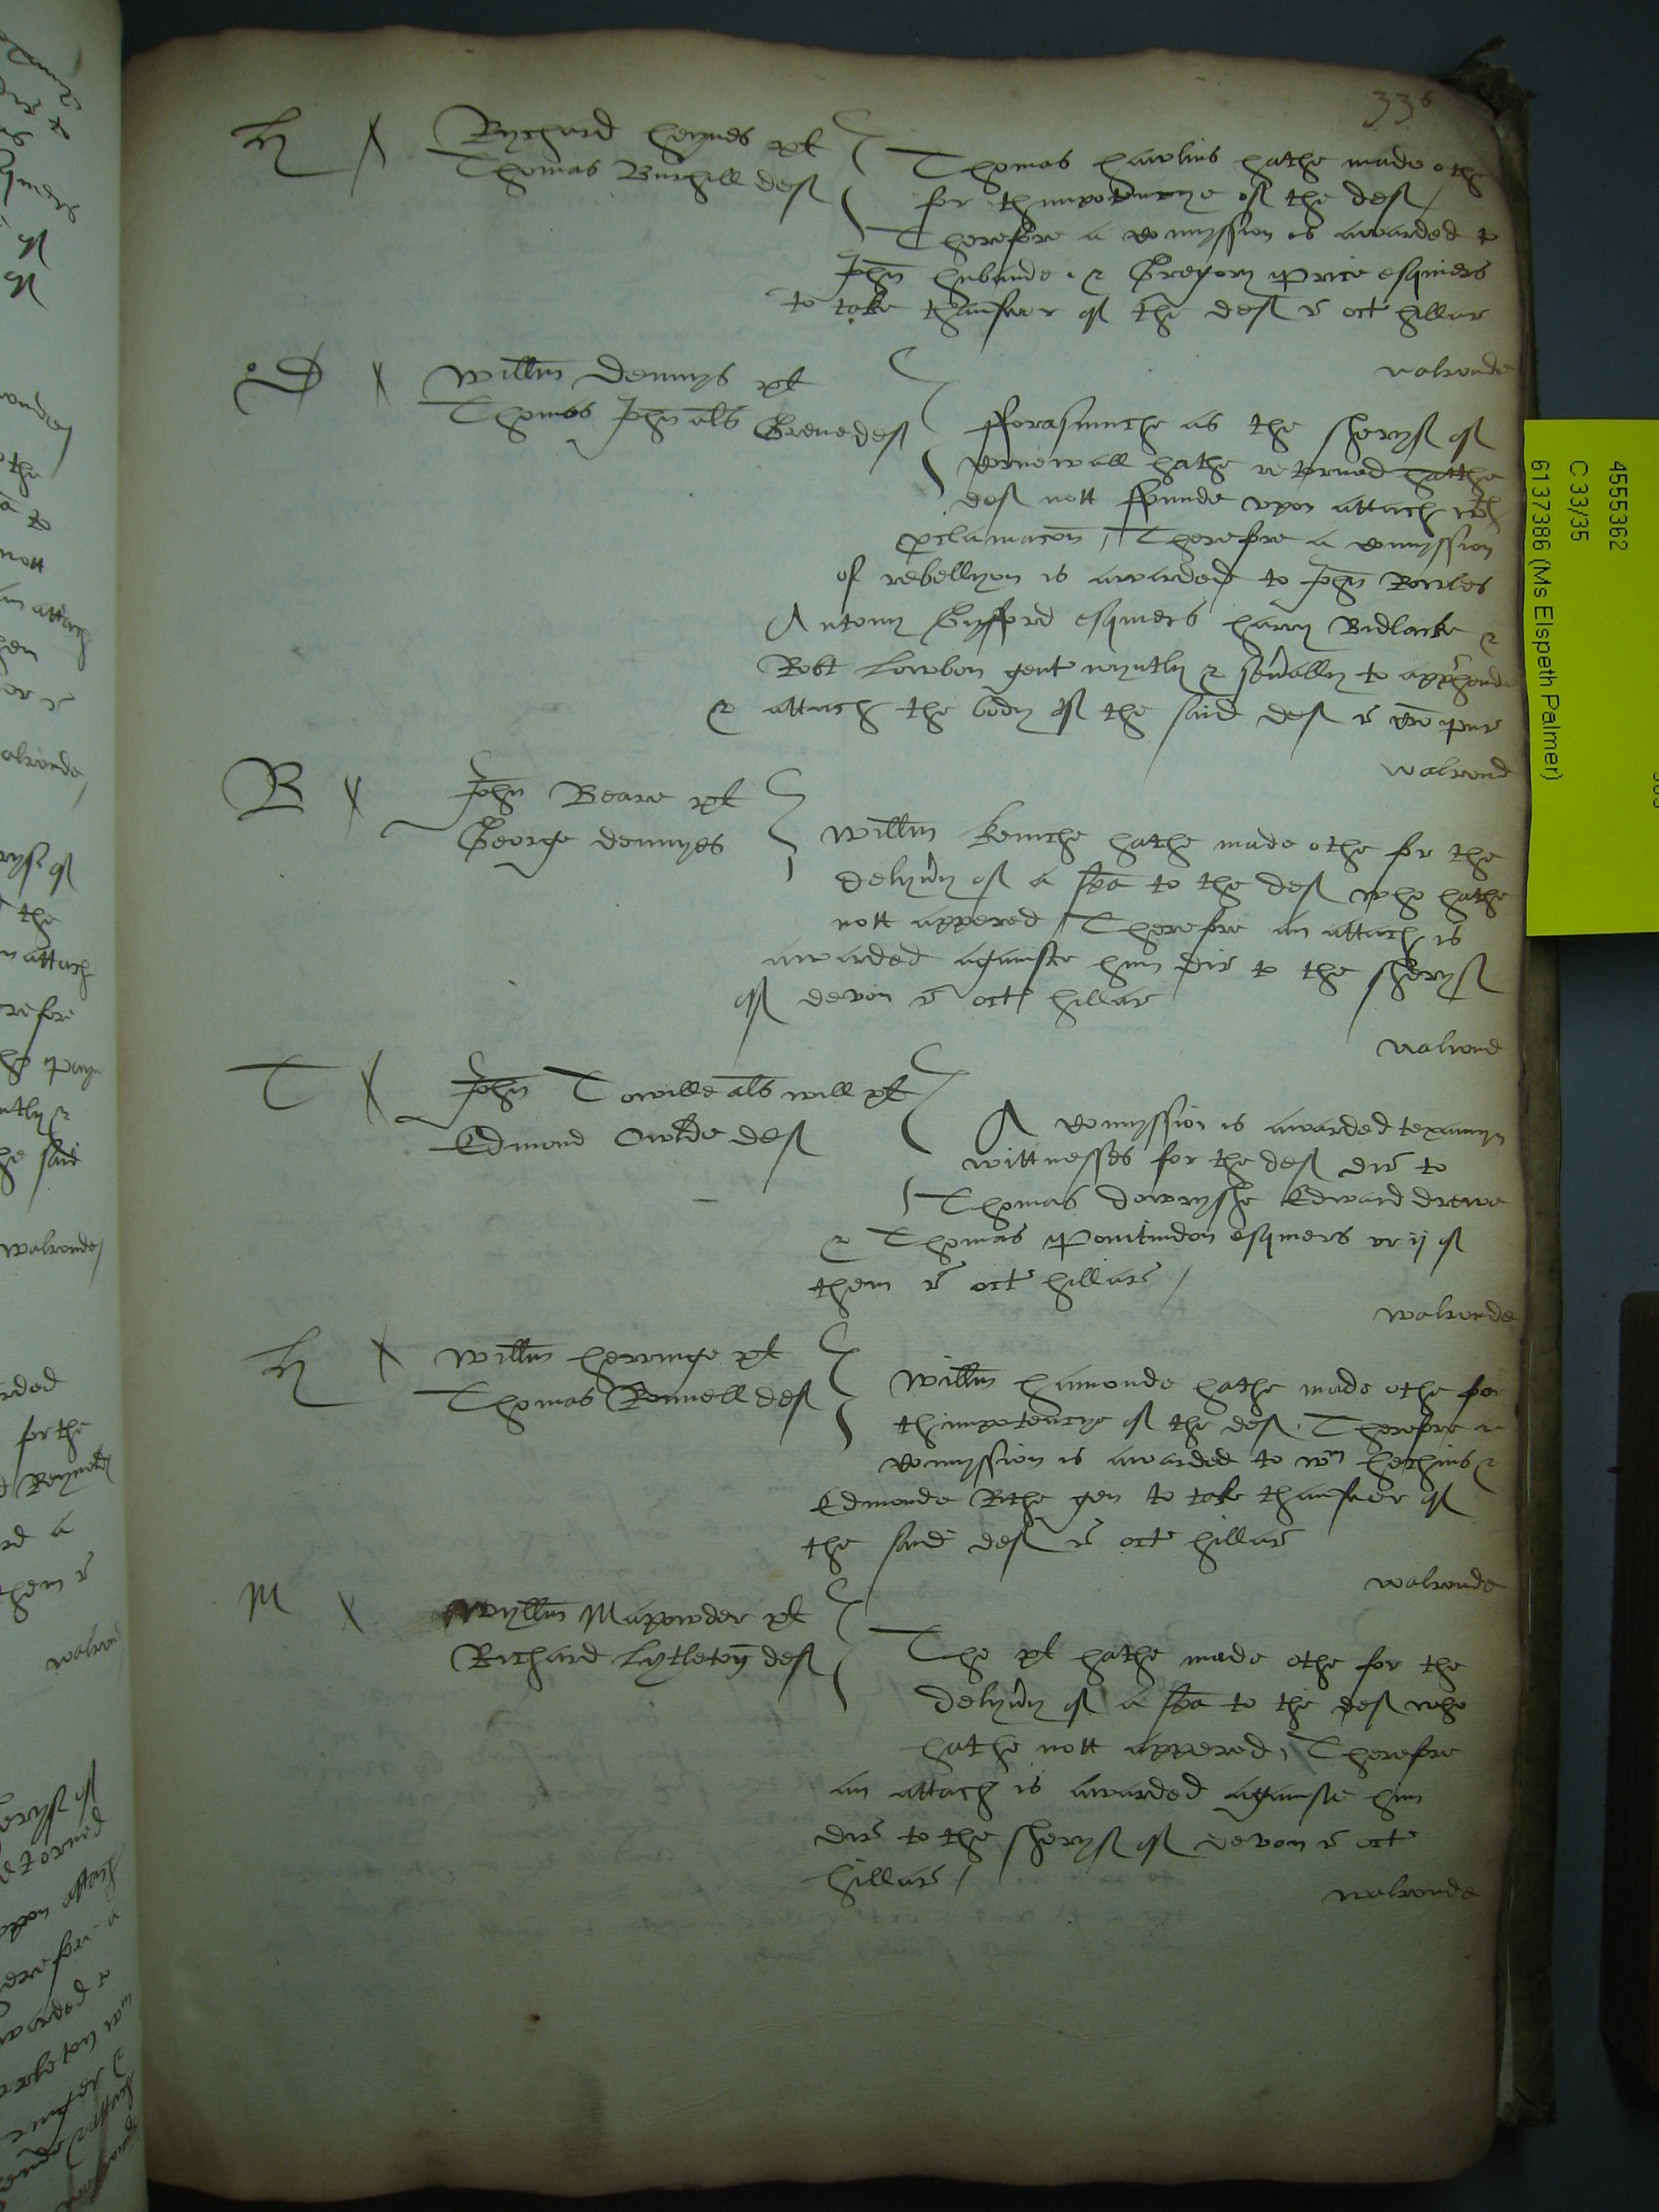 336
H X Rychard heynes pl
Thomas Burghill def
Thomas hawlins hathe made othe
for thimpotencye of the def /
Therefore a comyssion is awarded to
John hubande & Gregory Price esquiers
to take thansuer of the def r oct hillar
walronde
D X Willm Dennys pl
Thomas John als Greue def
fforasmuche as the sheryf of
Cornewall hathe retorned hatthe
def nott ffounde vpon attach wth
pclamacon / Therefore a comyssion
of rebellyon is awarded to John
Antony Gyfford esquiers harry Bidlacke &
Robt Lowbon gent ioyntly & seually to apprehende
& attach the body of the said def r pur
walrond
B X John Beare pl
George dennyes
Willm kenche hathe made othe for the
delyuy of a spa to the def who hathe
nott appered / Therefore an attach is
awarded againste him dir to the sheryf
of devon r oct hillar
walrond
T X John Towille als will pl
Edmond Owlde def
A comyssion is awarded texamyn
wittnesses for the def dir to
Thomas Dowryshe Edward drewe
& Thomas esquiers or ij of
them r oct hillar /
walronde
H X Willm herringe pl
Thomas Bonnell def
Willm hamonde hathe made othe for
thimpotencye of the def . Therefore a
comyssion is awarded to Wm hechins &
Edmonde Rithe gen to take thansuer of
the said def r oct hillar
walronde
M X Wyllm Mapowder pl
Richard Lytleton def
The pl hathe made othe for the
delyuy of a spa to the def who
hathe nott appered / Therefore
an attach is awarded againste him
dir to the sheryf of devon r oct
hillar /
walronde
4555362
C 33/35
6137386 (Ms Elspeth Palmer)